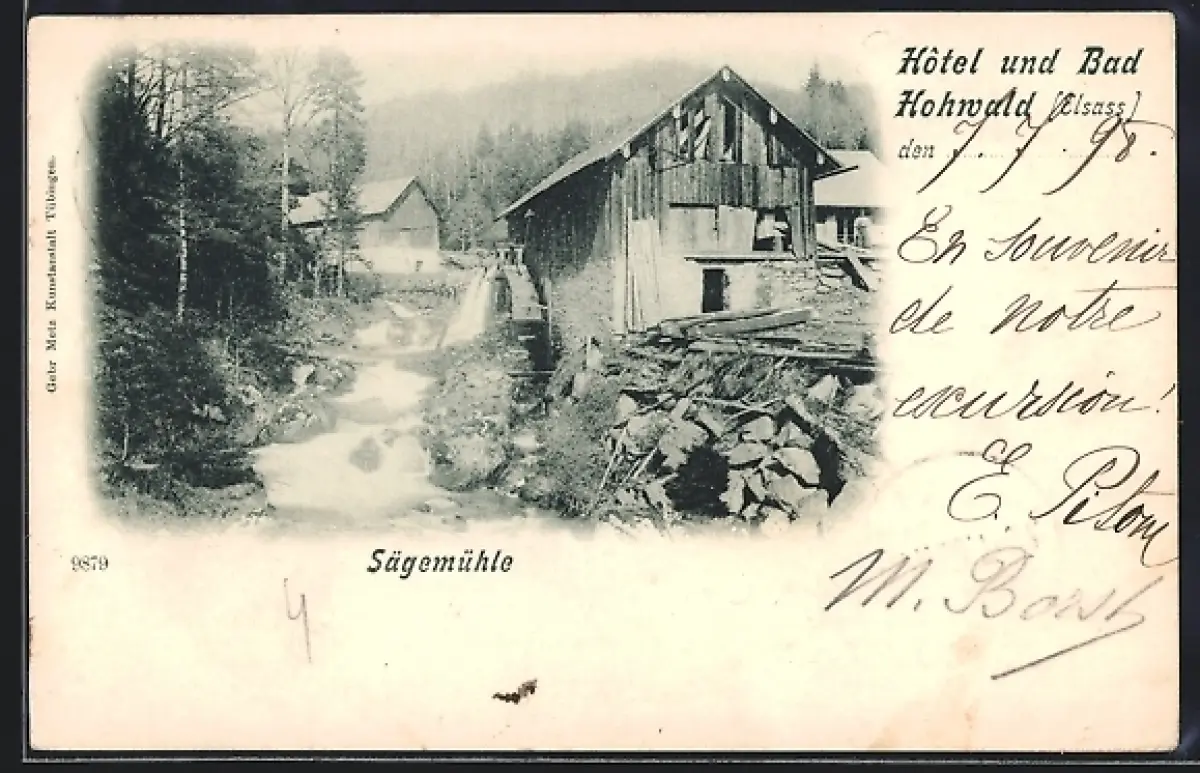 Hôtel und Bad
Hohwald (Elsass)
den 7. 7. 98.
En souvenir
de notre
excursion!
E. Pitom
M. Borst
Gebr Metz Kunstanstalt Tübingen.
9879
Sägemühle
4